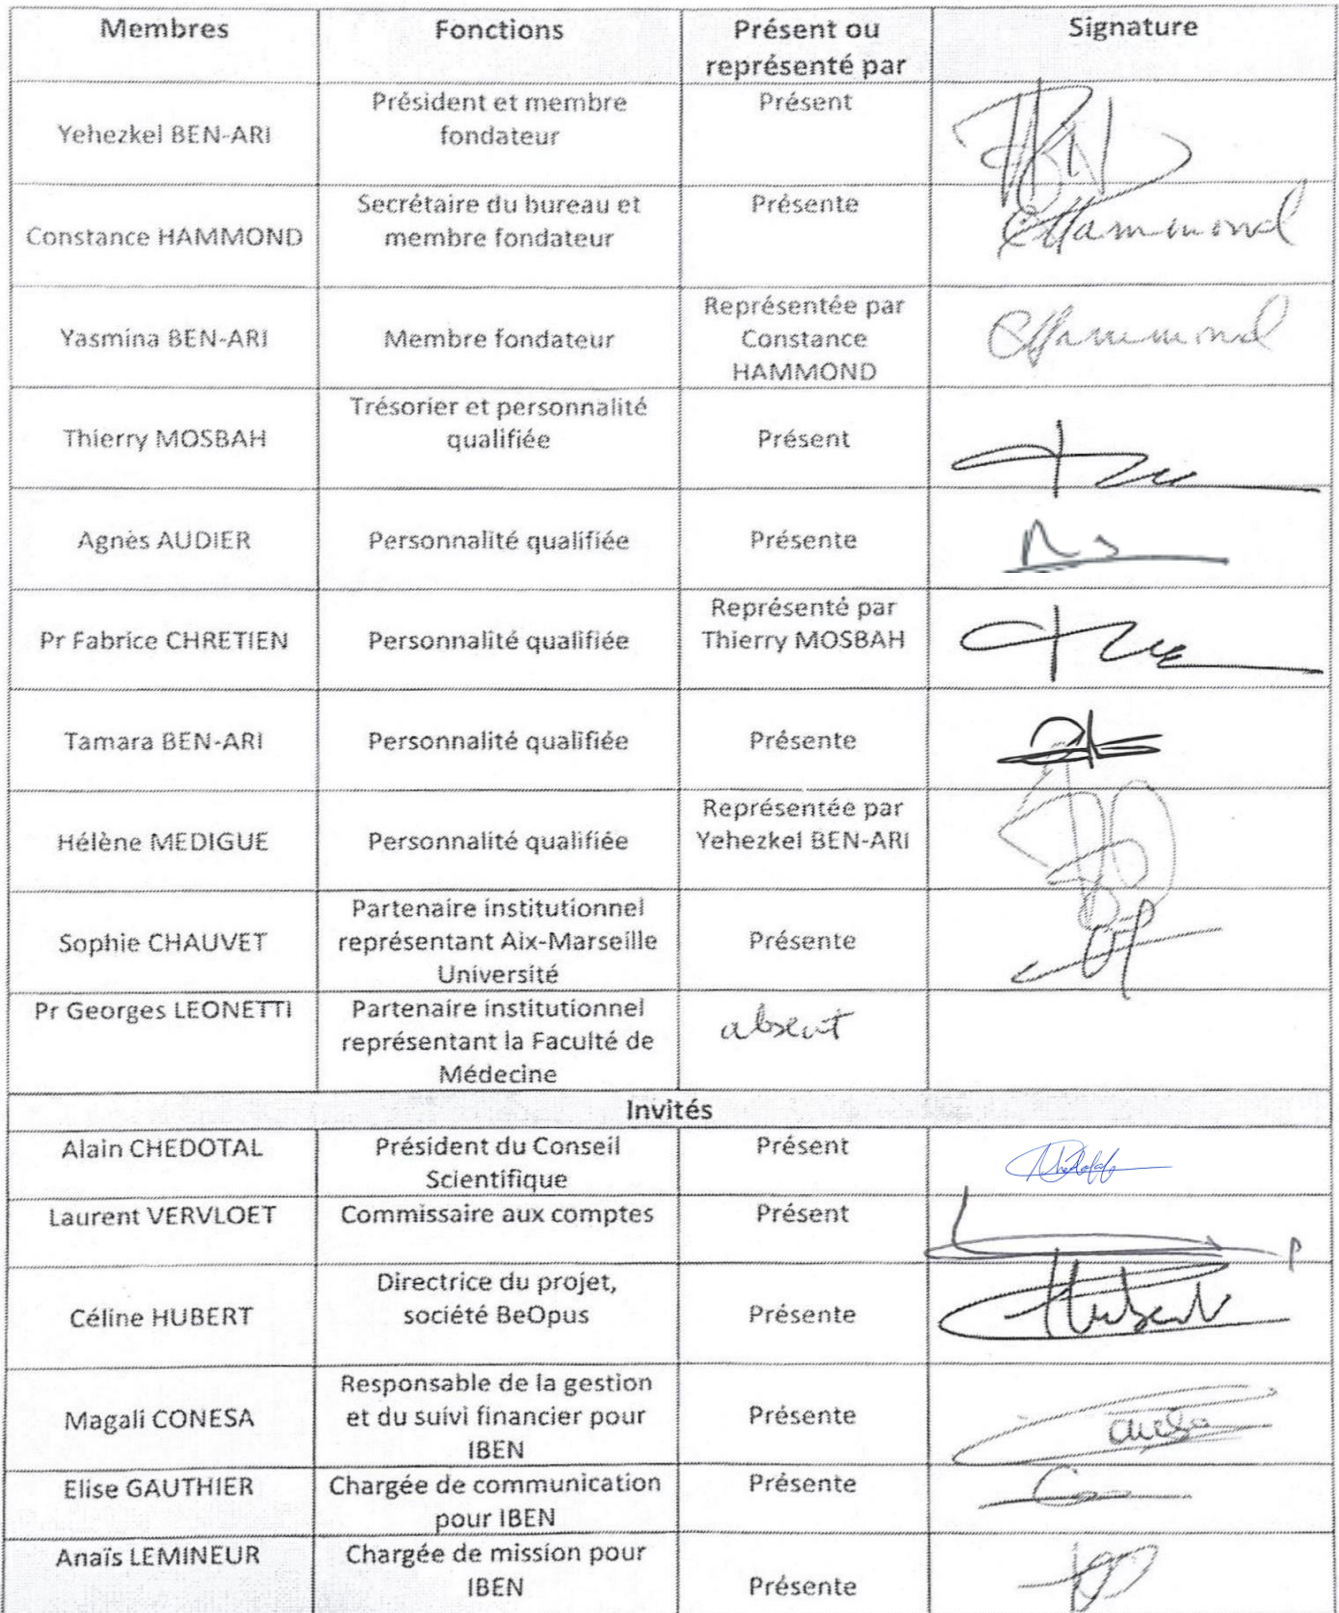 Membres Fonctions Présent ou Signature
représenté par
Yehezkel BEN-ARI Président et membre Présent
fondateur
Constance HAMMOND Secrétaire du bureau et Présente CHammond
membre fondateur
Yasmina BEN-ARI Membre fondateur Représentée par CHammond
Constance
HAMMOND
Thierry MOSBAH Trésorier et personnalité Présent
qualifiée
Agnès AUDIER Personnalité qualifiée Présente
Pr Fabrice CHRETIEN Personnalité qualifiée Représenté par
Thierry MOSBAH
Tamara BEN-ARI Personnalité qualifiée Présente
Hélène MEDIGUE Personnalité qualifiée Représentée par
Yehezkel BEN-ARI
Sophie CHAUVET Partenaire institutionnel Présente
représentant Aix-Marseille
Université
Pr Georges LEONETTI Partenaire institutionnel absent
représentant la Faculté de
Médecine
Invités
Alain CHEDOTAL Président du Conseil Présent
Scientifique
Laurent VERVLOET Commissaire aux comptes Présent
Céline HUBERT Directrice du projet, Présente Hubert
société BeOpus
Magali CONESA Responsable de la gestion Présente
et du suivi financier pour
IBEN
Elise GAUTHIER Chargée de communication Présente
pour IBEN
Anaïs LEMINEUR Chargée de mission pour Présente
IBEN